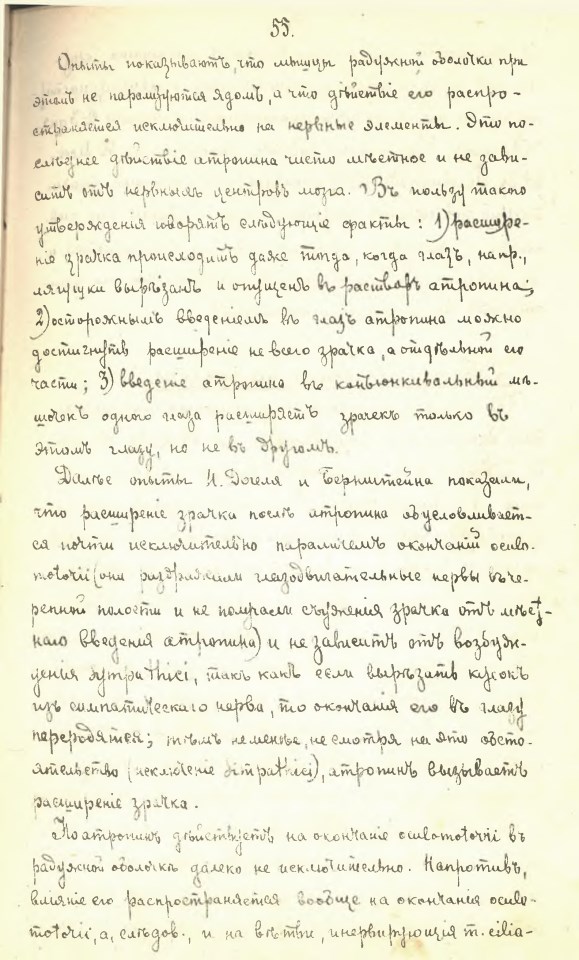 55.
Опыты показываютъ, что мышцы радужной оболочки при
этомъ не парализуются ядомъ, а что дѣйствіе его распро-
страняется исключительно на нервные элементы. Это по-
слѣднее дѣйствіе атропина чисто мѣстное и не зави-
ситъ отъ нервныхъ центровъ мозга. Въ пользу такого
утвержденія говорятъ слѣдующіе факты: 1) расшире-
ніе зрачка происходитъ даже тогда, когда глазъ, напр.,
лягушки вырѣзанъ и опущенъ въ растворъ атропина;
2) осторожнымъ введеніемъ въ глазъ атропина можно
достигнуть расширеніе не всего зрачка, а отдѣльной его
части; 3) введеніе атропина въ конъюнкивальный мѣ-
шочекъ одного глаза расширяетъ зрачекъ только въ
этомъ глазу, но не въ другомъ.
Далѣе опыты И. Догеля и Бернштейна показали,
что расширеніе зрачка послѣ атропина обусловливает-
ся почти исключительно параличемъ окончаній oculo-
motorii (они раздражали глазодвигательные нервы въ че-
репной полости и не получали съуженія зрачка отъ мѣст-
наго введенія атропина) и не зависитъ отъ возбуж-
денія sympathici, такъ какъ если вырѣзать кусокъ
изъ симпатическаго нерва, то окончанія его въ глазу
переродятся; тѣмъ не менѣе, не смотря на это обсто-
ятельство (исключеніе simpathici), атропинъ вызываетъ
расширеніе зрачка.
Но атропинъ дѣйствуетъ на окончаніе oculomotorii въ
радужной оболочкѣ далеко не исключительно. Напротивъ,
вліяніе его распространяется вообще на окончанія oculo-
motorii, а, слѣдов., и на вѣтви, инервирующія m. cilia-